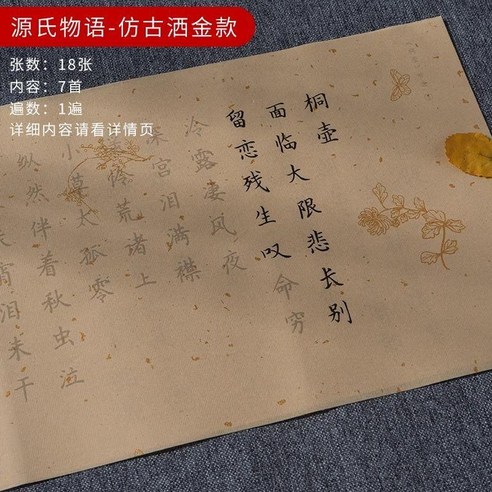 源氏物语-仿古洒金款
张数：18张
内容：7首
遍数：1遍
详细内容请看详情页
桐壶
面临大限悲长别
留恋残生叹命穷
冷露凄风夜
深宫泪满襟
怜荒渚上
小草太孤零
纵然伴着秋虫泣
宵泪未干